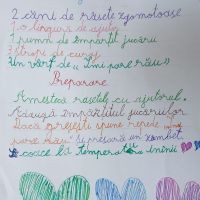 2 căni de râsete zgomotoase
1 o lingură de ajutor
1 pumn de împărțit jucării
3 stropi de curaj
Un vârf de „Îmi pare rău"
Preparare
Amestecă râsetele cu ajutorul.
Adaugă împărțitul jucăriilor
Dacă greșești spune repede „îmi
pare rău" și presară un zâmbet
coace la temperatura inimii